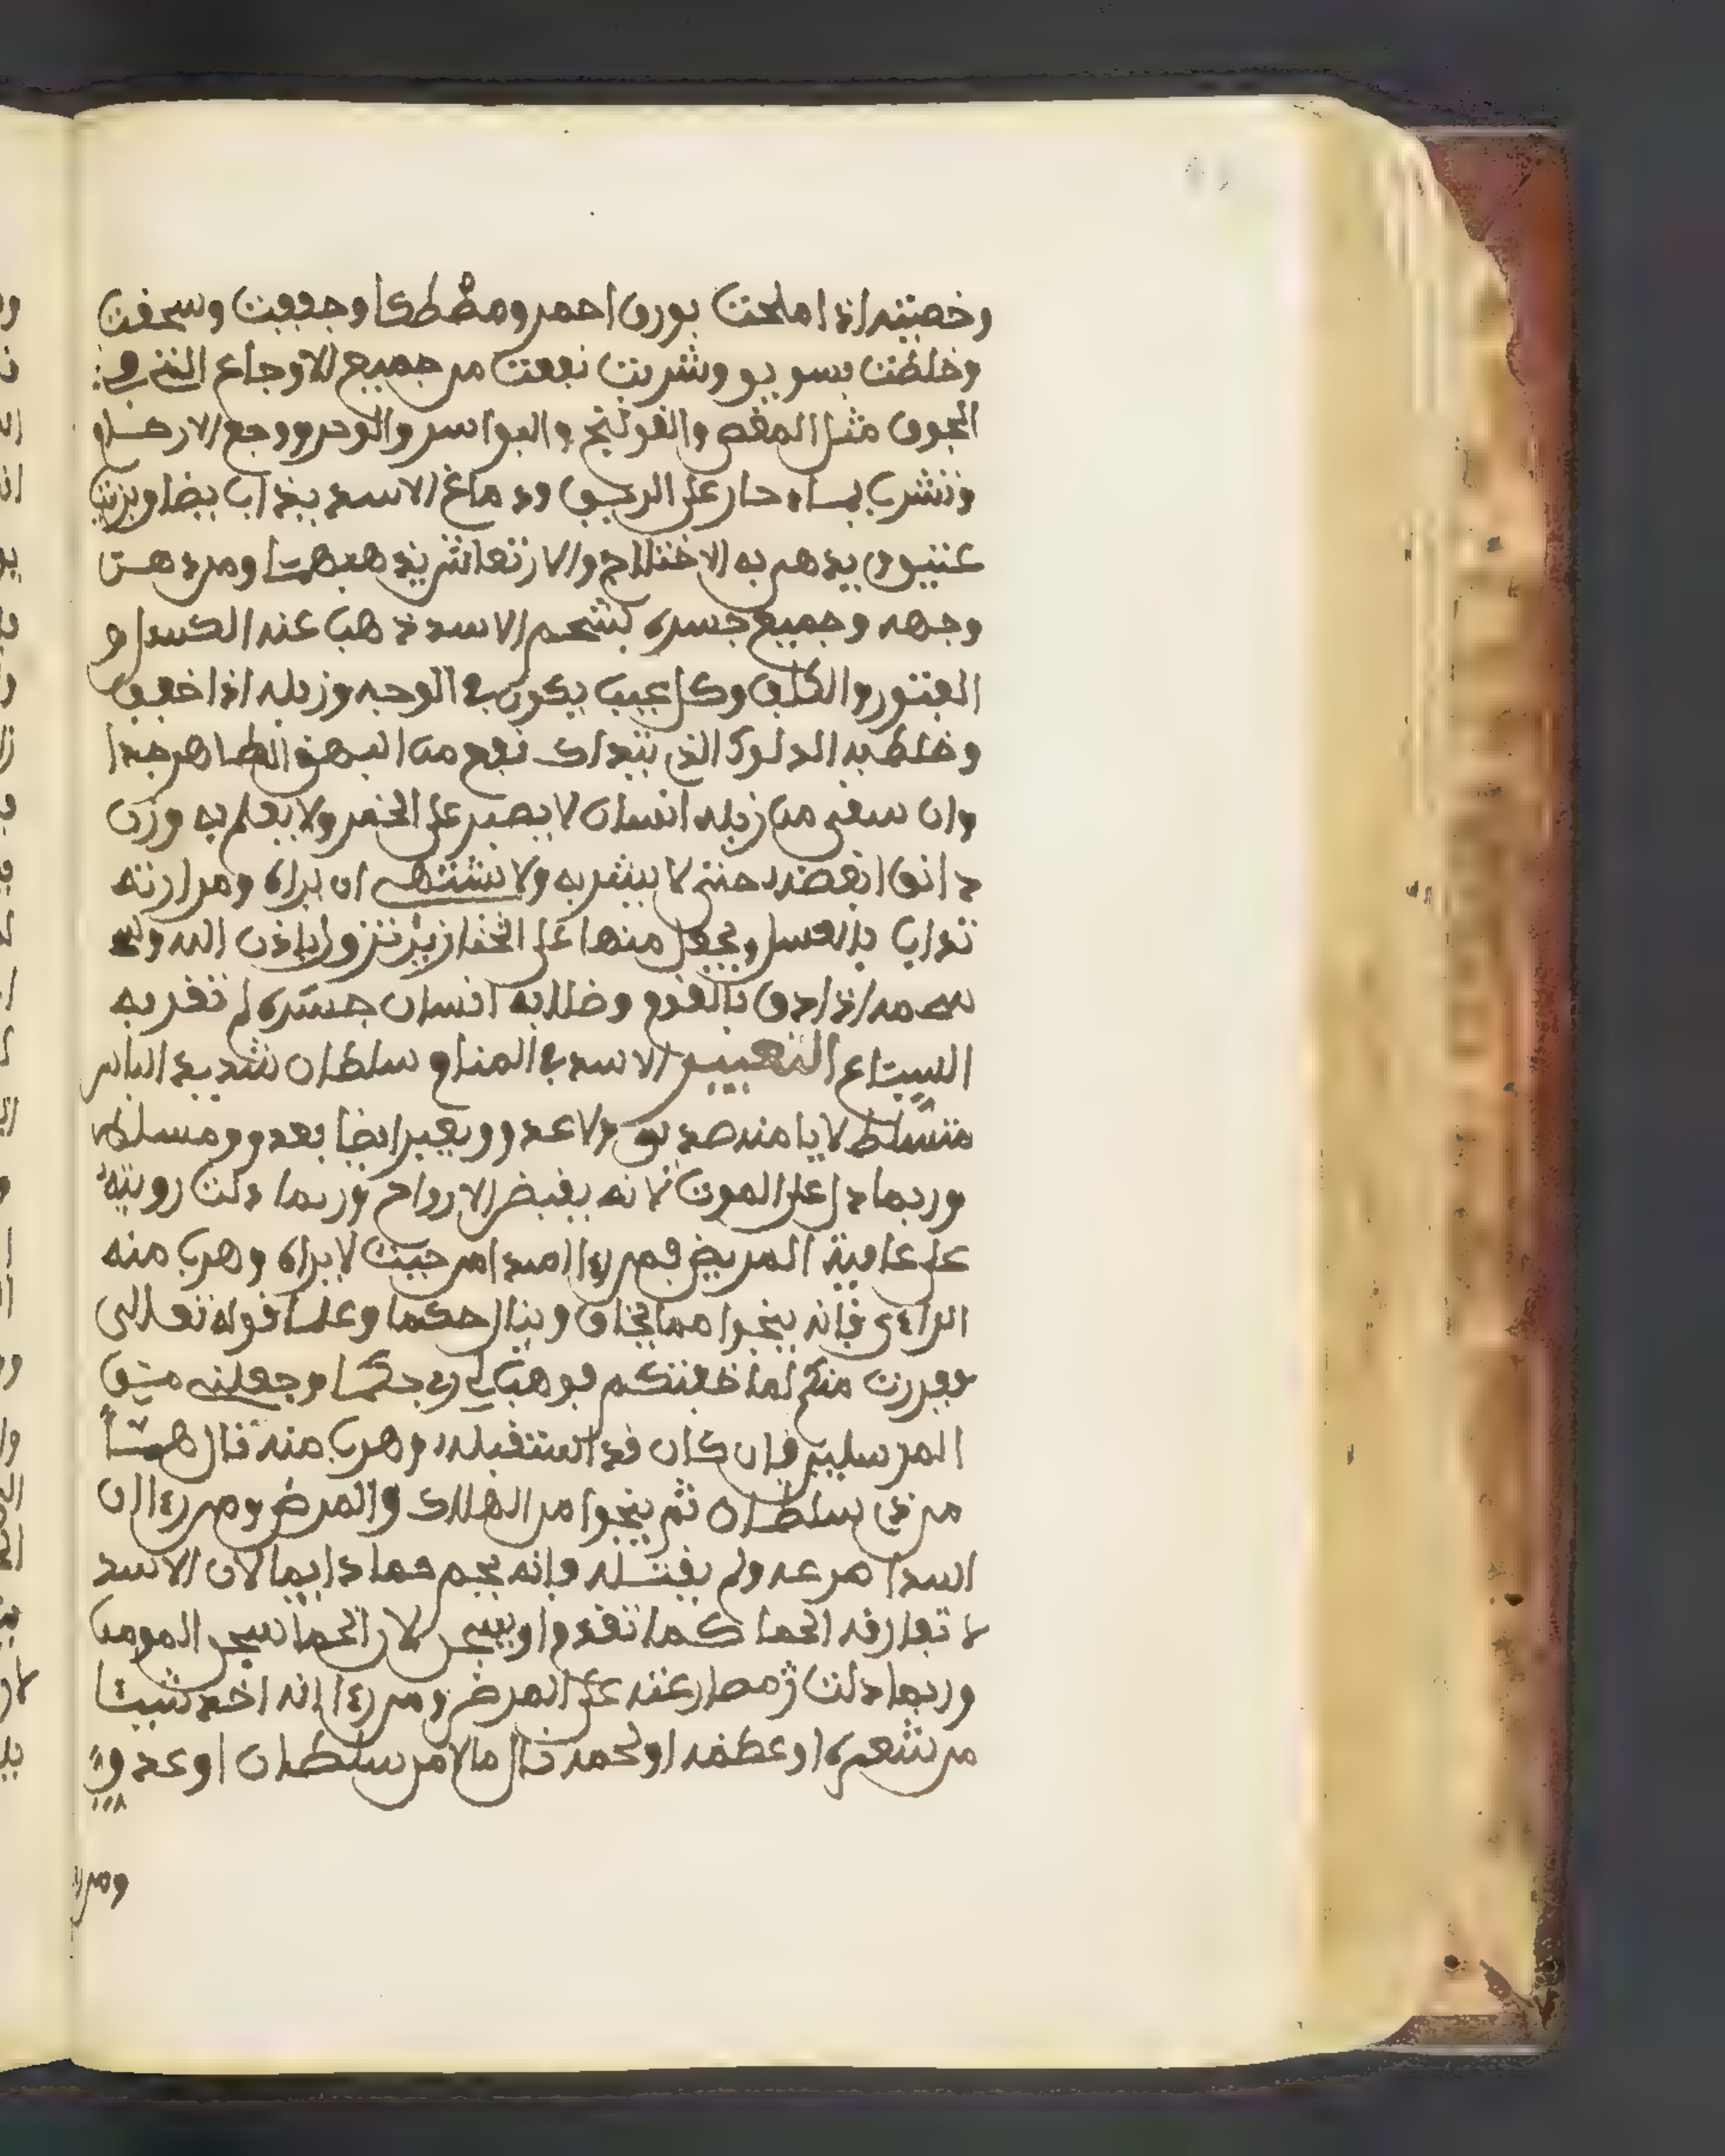 وخصيته اذا ملحت ببورق احمر ومصطكا وجففت وسحقت
وخلطت بسويق وشربت نفعت من جميع الاوجاع التى فى
الجوف مثل المغص والقولنج والبواسر والزحير ووجع الارحام
وتشرب بماء حار على الريق ودماغ الاسد يذاب ايضا وبزيت
عتيق يدهن به الاختلاج والارتعاش يذهبهما ومن دهن
وجهه وجميع جسده بشحم الاسد ذهب عنه الكسل و
الفتور والكلف وكل عيب يكون في الوجه وزبله اذا خفف
وخلط به الدلوك الذي يتدلك نفع من البهق الظاهر جدا
وان سقي من زبله انسان لا يصبر على الخمر ولا يعلم به وزن
دانق ابغضه حتى لا يشربه ولا يشتهي ان يراه ومرارته
تداب بالعسل ويجعل منها على الخنازير تزول باذن الله و
شحمه اذا دق بالثوم وطلا به انسان جسده لم تقربه
السباع التعبير الاسد في المنام سلطان شديد الباس
متسلط لا يامنه صديق ولا عدو ويعبر ايضا بعدو ومسلط
وربما دل على الموت لانه يقبض الارواح وربما دلت رويته
على عافية المريض فمن رءا اسدا من حيث لا يراه وهرب منه
الراءى فانه ينجوا مما يخاف وينال حكما وعلما لقوله تعالى
ففررت منكم لما خفتكم فوهب لي ربي حكما وجعلني من
المرسلين فان كان قد استقبله وهرب منه نال هما
من ذي سلطان ثم ينجوا من الهلاك والمرض ومن رءا ان
اسدا صرعه ولم يقتله فانه يحم حما دايما لان الاسد
لا تفارقه الحما كما تقدم او يسجن لان الحما سجن المومن
وربما دلت مصارعته على المرض ومن رءا انه اخذ شيئا
من شعره او عظمه او لحمه نال مالا من سلطان او عدو
ومن